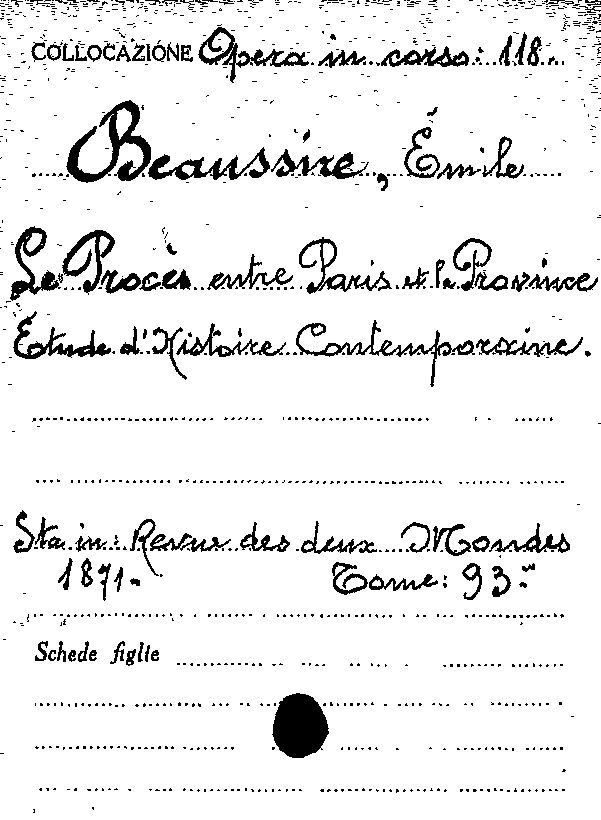 COLLOCAZIONE Opera in corso: 118.
Beaussire, Émile
Le Procès entre Paris et la Province
Étude d'Histoire Contemporaine.
Sta in: Revue des deux Mondes
1871. Tome: 93.
Schede figlie